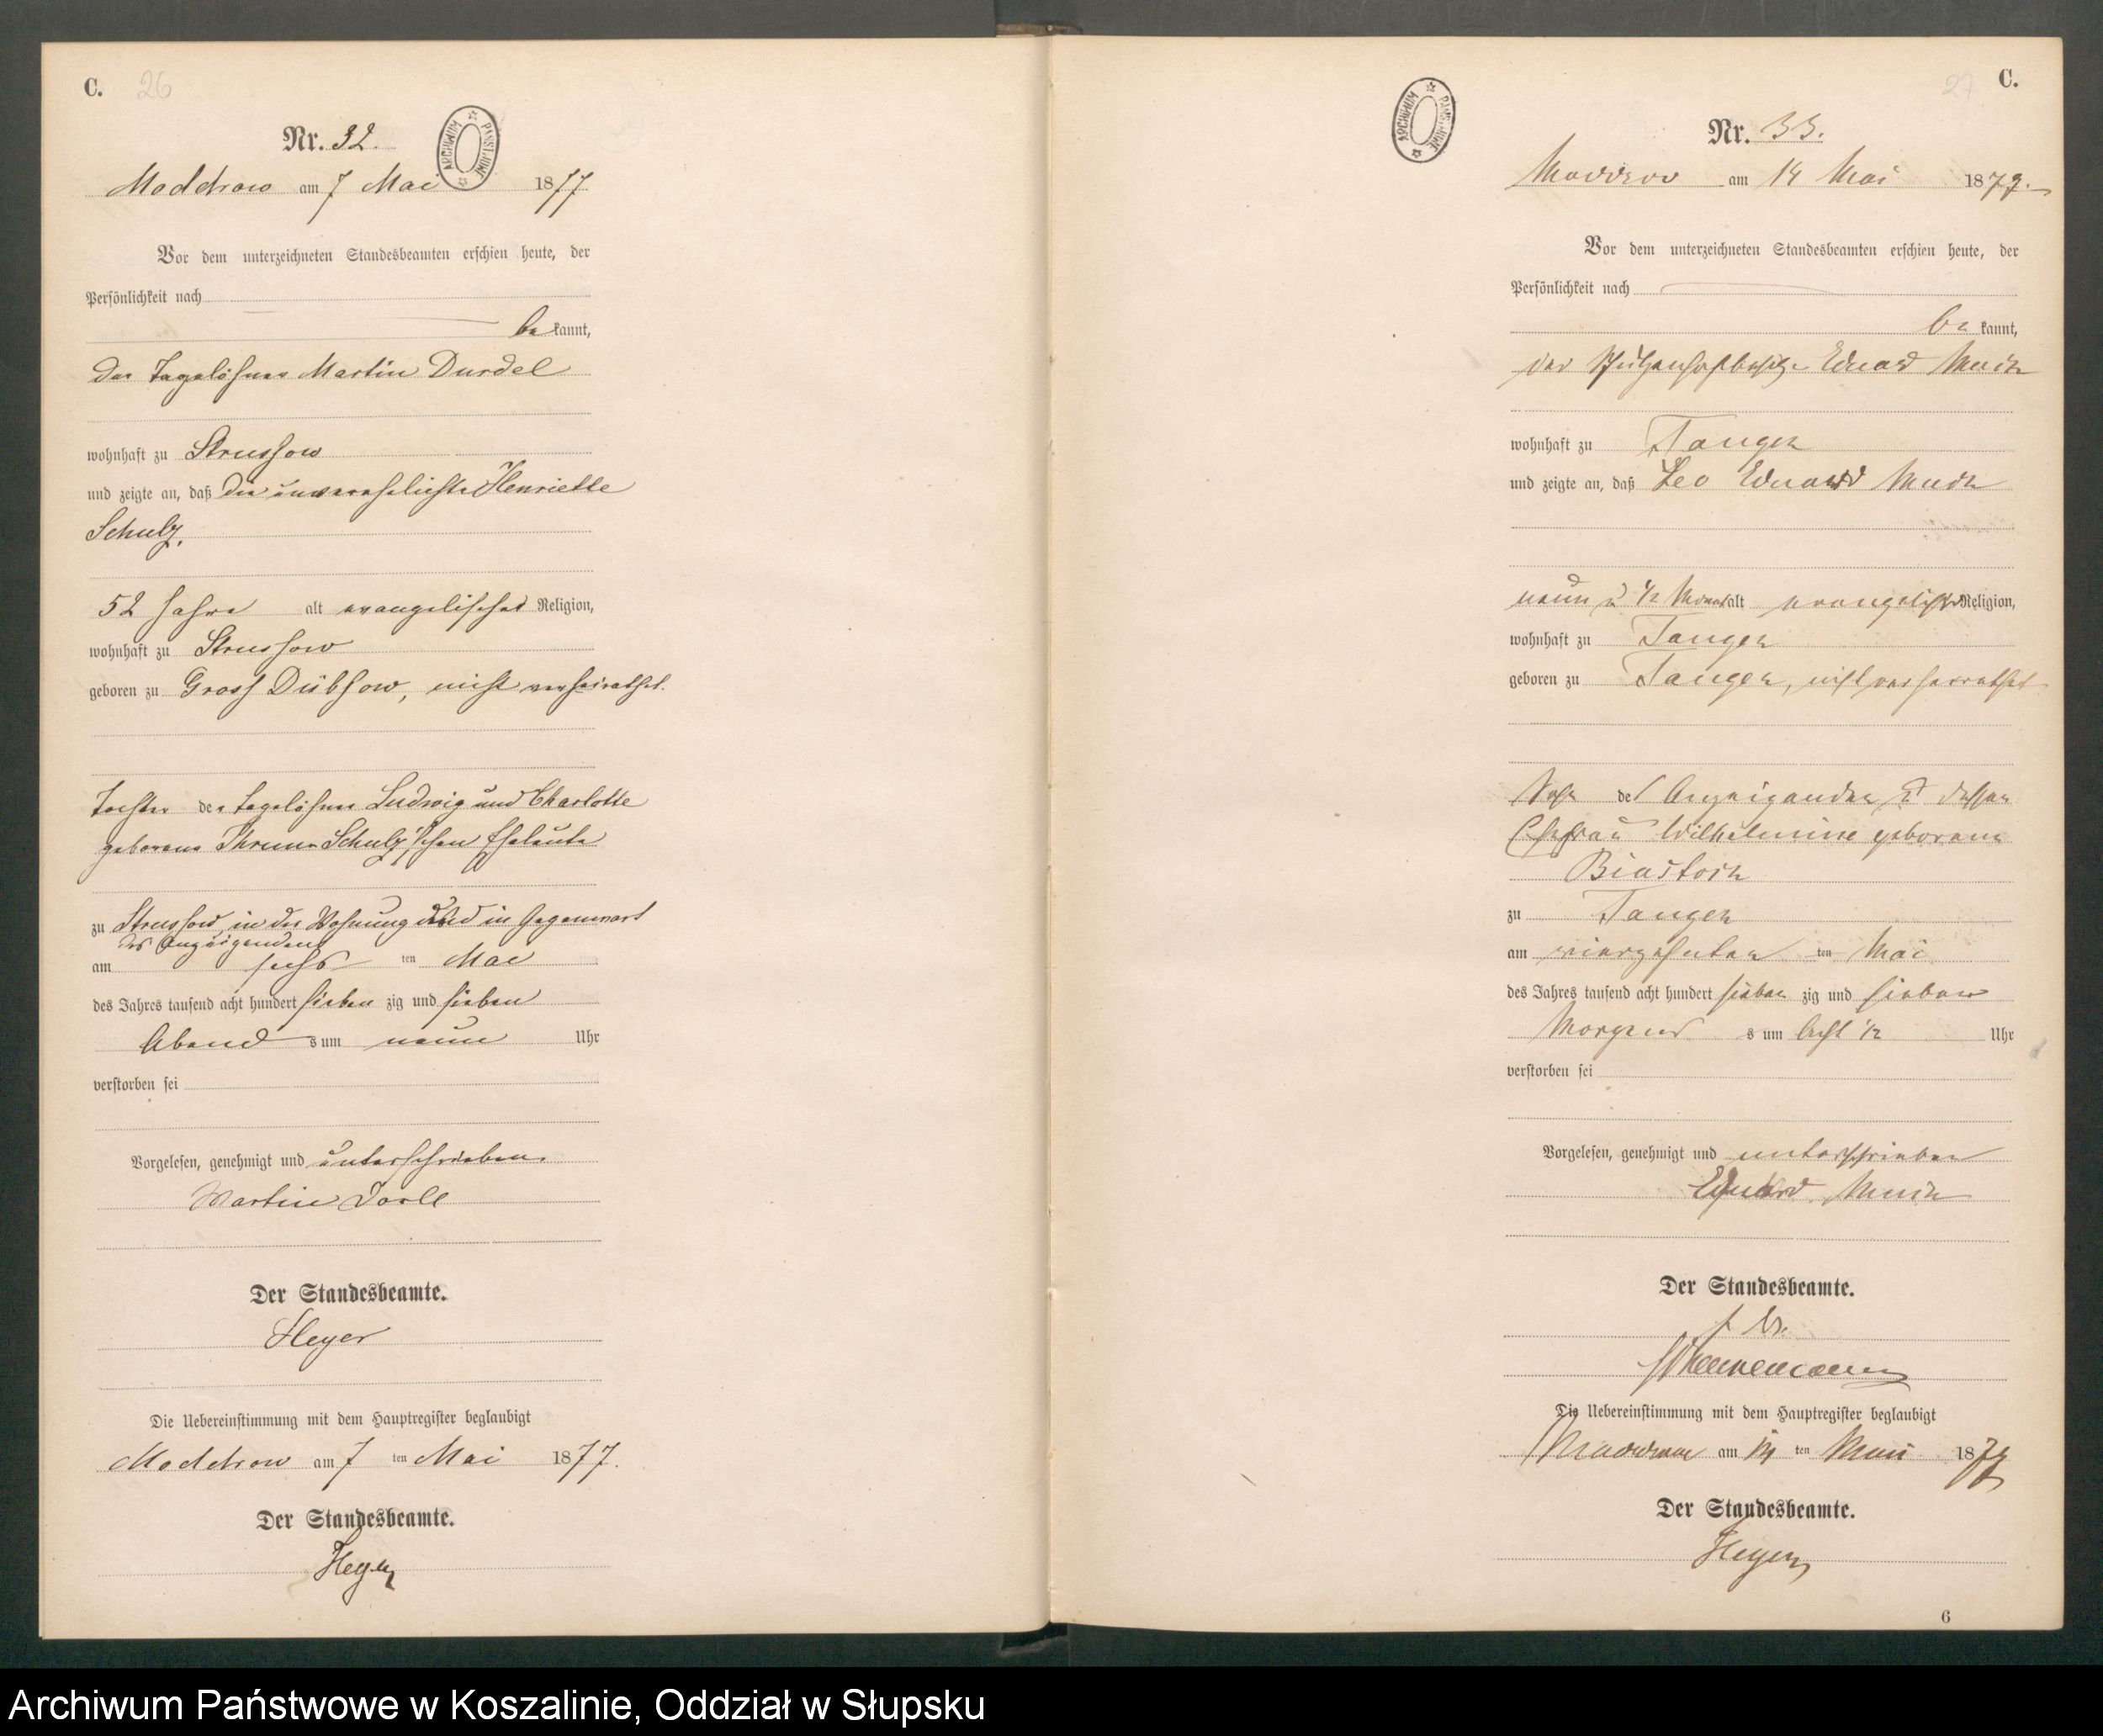 C. 26
Nr. 32.
Moddrow am 7 Mai 1877.
Vor dem unterzeichneten Standesbeamten erschien heute, der
Persönlichkeit nach
be kannt,
der Tagelöhner Martin Durdel
wohnhaft zu Strussow
und zeigte an, daß die unverehelichte Henriette
Schulz,
52 Jahre alt evangelischer Religion,
wohnhaft zu Strussow
geboren zu Gross Dübsow, nicht verheirathet.
Tochter der Tagelöhner Ludwig und Charlotte
geborene Schulz'schen Eheleute
zu Strussow, in der Wohnung und in Gegenwart
des Anzeigenden
am sechs ten Mai
des Jahres tausend acht hundert sieben zig und sieben
Abend s um neun Uhr
verstorben sei
Vorgelesen, genehmigt und unterschrieben.
Martin
Der Standesbeamte.
Heyer
Die Uebereinstimmung mit dem Hauptregister beglaubigt
Moddrow am 7 ten Mai 1877.
Der Standesbeamte.
Heyer
27 C.
Nr. 33.
Moddrow am 14 Mai 1877.
Vor dem unterzeichneten Standesbeamten erschien heute, der
Persönlichkeit nach
be kannt,
der Eduard
wohnhaft zu Tangen
und zeigte an, daß Leo Eduard
neun u ½ Monat alt evangelischer Religion,
wohnhaft zu Tangen
geboren zu Tangen, nicht verheirathet
Sohn des Anzeigenden u dessen
Ehefrau Wilhelmine geborene
zu Tangen
am vierzehnten ten Mai
des Jahres tausend acht hundert sieben zig und sieben
Morgens s um Acht ½ Uhr
verstorben sei
Vorgelesen, genehmigt und unterschrieben
Eduard
Der Standesbeamte.
Die Uebereinstimmung mit dem Hauptregister beglaubigt
Moddrow am 14 ten Mai 1877
Der Standesbeamte.
Heyer
6
ARCHIWUM PAŃSTWOWE
ARCHIWUM PAŃSTWOWE
Archiwum Państwowe w Koszalinie, Oddział w Słupsku